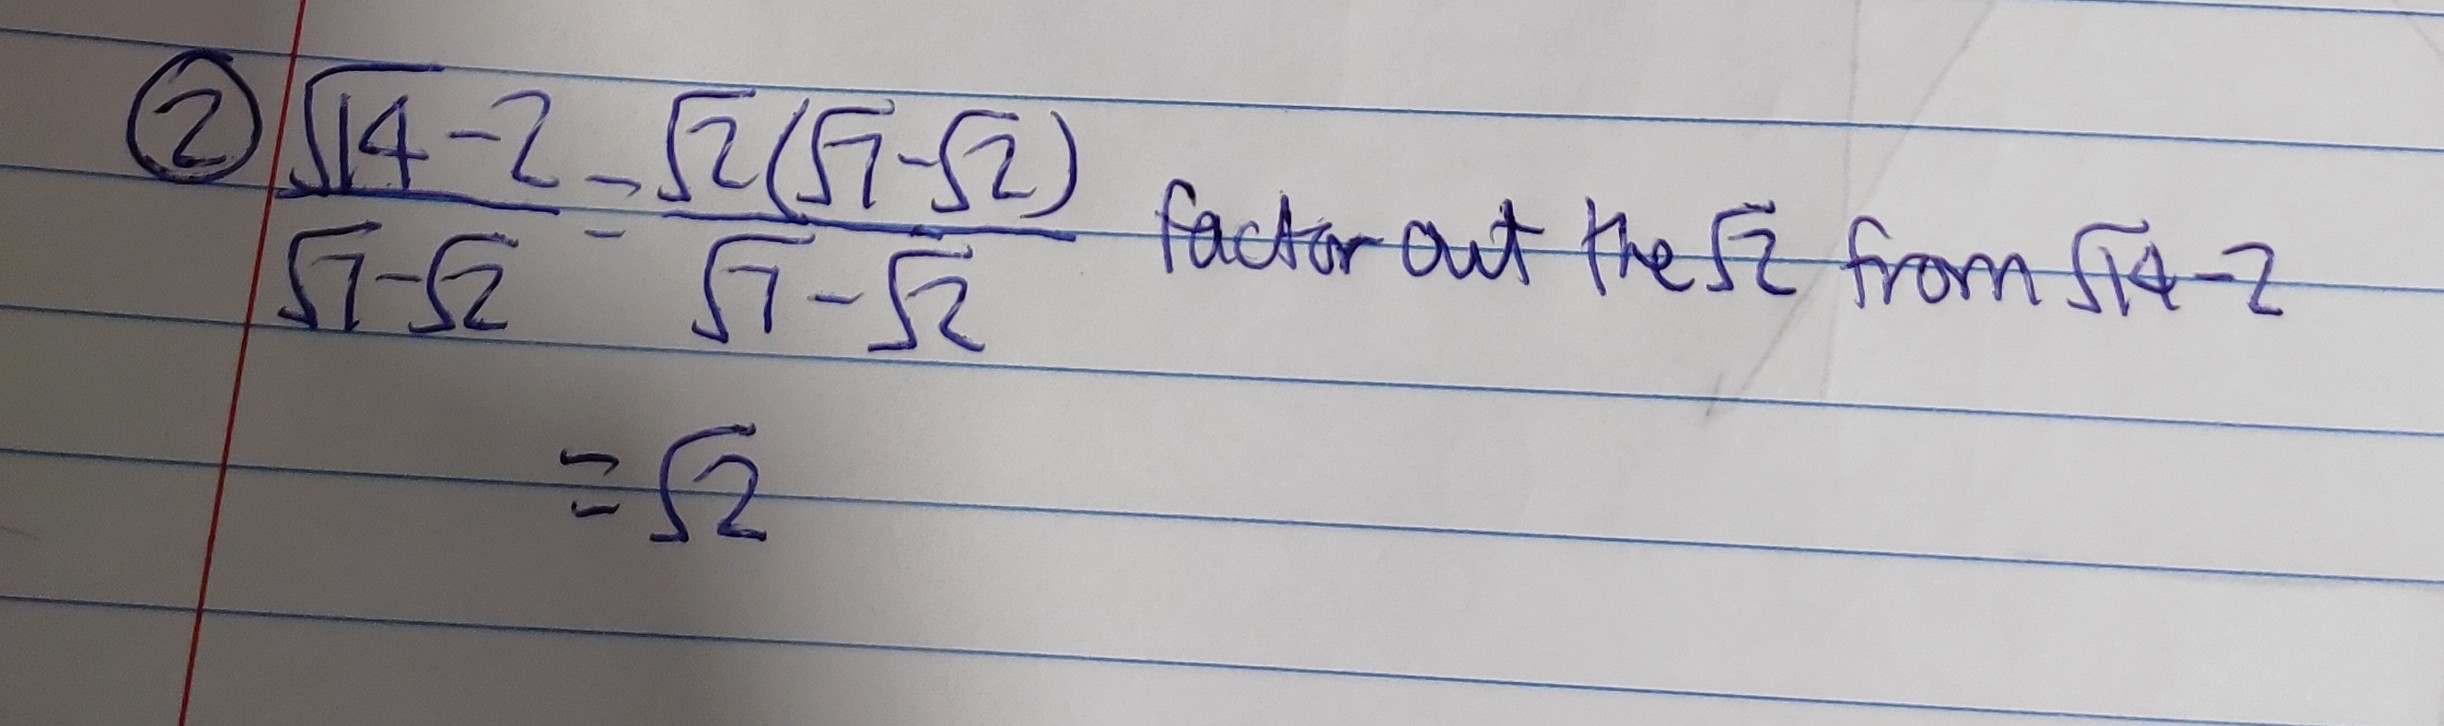 ② (√14 - 2)/(√7 - √2) = √2(√7 - √2)/(√7 - √2) factor out the √2 from √14 - 2
= √2